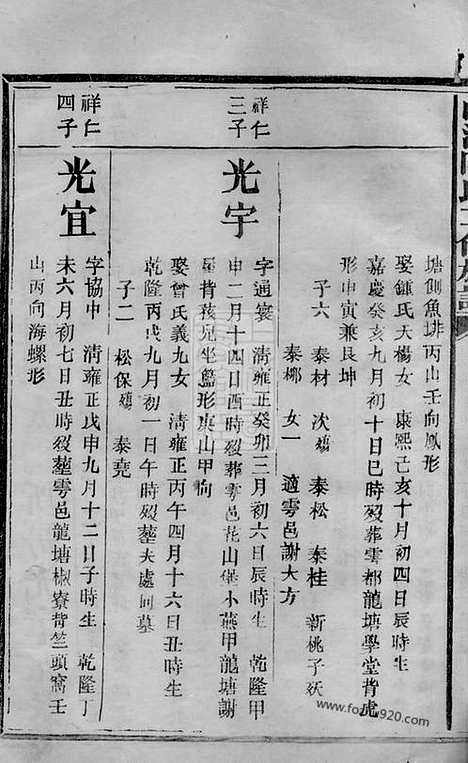 塘劊魚排丙山壬向鳳形
娶鍾氏天楊女 康熙己亥十月初四日辰時生
嘉慶癸亥九月初十日巳時歿葬雩都龍塘學堂背虎
形申寅兼艮坤
子六 泰材 次殤 泰松 泰桂 新桃子殀
泰梛 女一 適雩邑謝大方
祥仁三子
光宇
字通寰 清雍正癸卯三月初六日辰時生 乾隆甲
申二月十四日酉時歿葬雩邑花山堡小燕甲龍塘謝
屋背孩兒坐籃形庚山甲向
娶曾氏義九女 清雍正丙午四月十六日丑時生
乾隆丙戌九月初一日午時歿塟夫處同墓
子二 松保殤 泰堯
祥仁四子
光宜
字協中 清雍正戊申九月十二日子時生 乾隆丁
未六月初七日丑時歿塟雩邑龍塘椒寮背竺頭窩壬
山丙向海螺形
www.foxue920.com